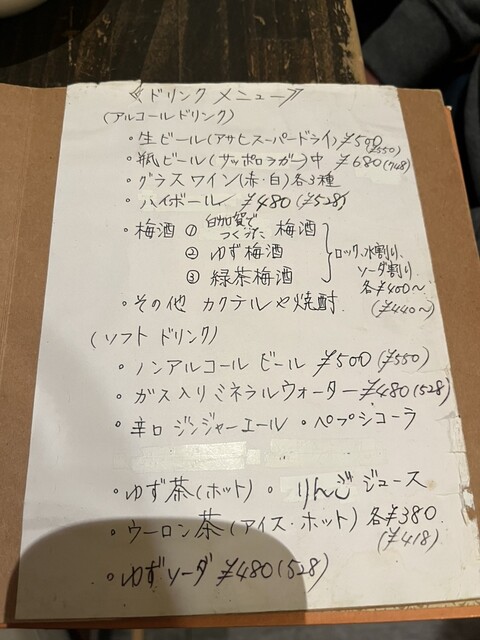 《ドリンク メニュー》
(アルコールドリンク)
・生ビール(アサヒスーパードライ)¥500
(¥550)
・瓶ビール(サッポロラガー)中 ¥680(748)
・グラスワイン(赤・白)各3種
・ハイボール ¥480(¥528)
・梅酒 ① 白加賀でつくった 梅酒
② ゆず梅酒
③ 緑茶梅酒
ロック、水割り、
ソーダ割り
各¥400〜
(¥440〜)
・その他 カクテルや焼酎
(ソフト ドリンク)
・ノンアルコール ビール ¥500(¥550)
・ガス入りミネラルウォーター ¥480(528)
・辛口 ジンジャーエール ・ペプシコーラ
・ゆず茶(ホット)・りんごジュース
・ウーロン茶(アイス・ホット)各¥380
(¥418)
・ゆずソーダ ¥480(528)